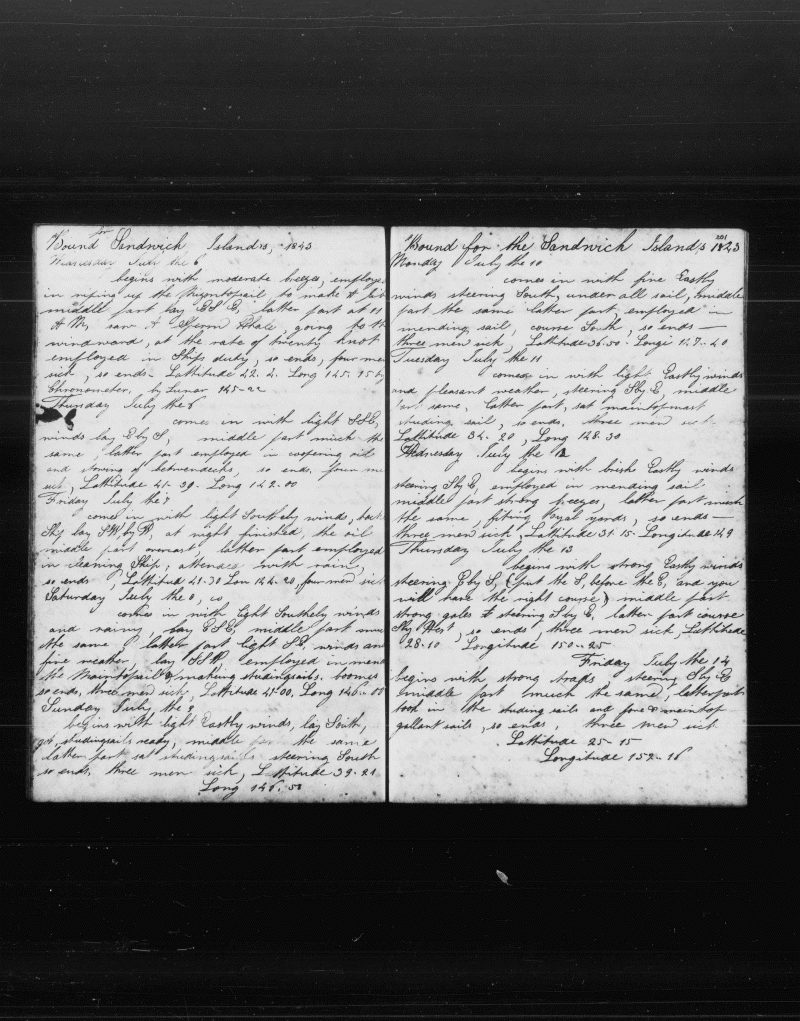 Bound for Sandwich Islands, 1843
Wednesday July the 6
begins with moderate breezes, employed
in riping up the Mizontopsail to make it fit
middle part lay ESE, latter part at 11
A M, saw A Sperm Whale, going to the
windward, at the rate of twenty knot
employed in Ships duty, so ends, four men
sick, so ends. Lattitude 42.2. Long 145.15 by
Chronometer, by Lunar 145-22
Thursday July the 6
comes in with light SSE,
winds lay E by S, middle part much the
same, latter part employed in coopering oil
and stowing of betweendecks, so ends. four me
sick, Lattitude 41-39- Long 142-00
Friday July the 7
comes in with light Southely winds, back
Ship lay SW by W, at night finished, the oil
middle part overcast, latter part employed
in cleaning Ship, attended with rain,
so ends Lattitud 41-30 Lon 144-20, four men sick
Saturday July the 8,
comes in with light Southely winds
and rainy, lay ESE, middle part muc
the same latter part light SE, winds and
fine weather, lay SSW employed in mend
the Maintopsail & making studingsails booms
so ends, three men sick, Lattitude 41-00. Long 146-00
Sunday July the 9
begins with light Eastly winds, lay South,
got, studingsails ready, middle the same
latter part sat studingsails steering South
so ends, three men sick, Lattitude 39-21
Long 146-50
201
Bound for the Sandwich Islands 1843
Monday July the 10
comes in with fine Eastly
winds steering South, under all sail, middle
part the same latter part, employed in
mending sail, course South, so ends —
three men sick, Lattitude 36-50- Longi 147-40
Tuesday July the 11
comes in with light Eastly winds
and pleasant weather, steering S by E, middle
part same, latter part, sat maintopmast
studing sail, so ends. three men sick.
Lattitude 34-20, Long 148-30
Wednesday July the 12
begins with brisk Eastly winds
steering S by E, employed in mending sail
middle part strong breezes, latter part much
the same, fiting Royal yards, so ends —
three men sick, Lattitude 31-15- Longitude 149
Thursday July the 13
begins with strong Eastly winds
steering E by S, (put the S, before the E, and you
will have the right course) middle part
strong gales & steering S by E, latter part course
S by West, so ends, three men sick, Lattitude
28-10 Longitude 150-25
Friday July the 14
begins with strong trads, steering S by E
middle part much the same, latter part
took in the studing sails and fore & maintop
gallant sails, so ends, three men sick
Lattitude 25-15
Longitude 152-16